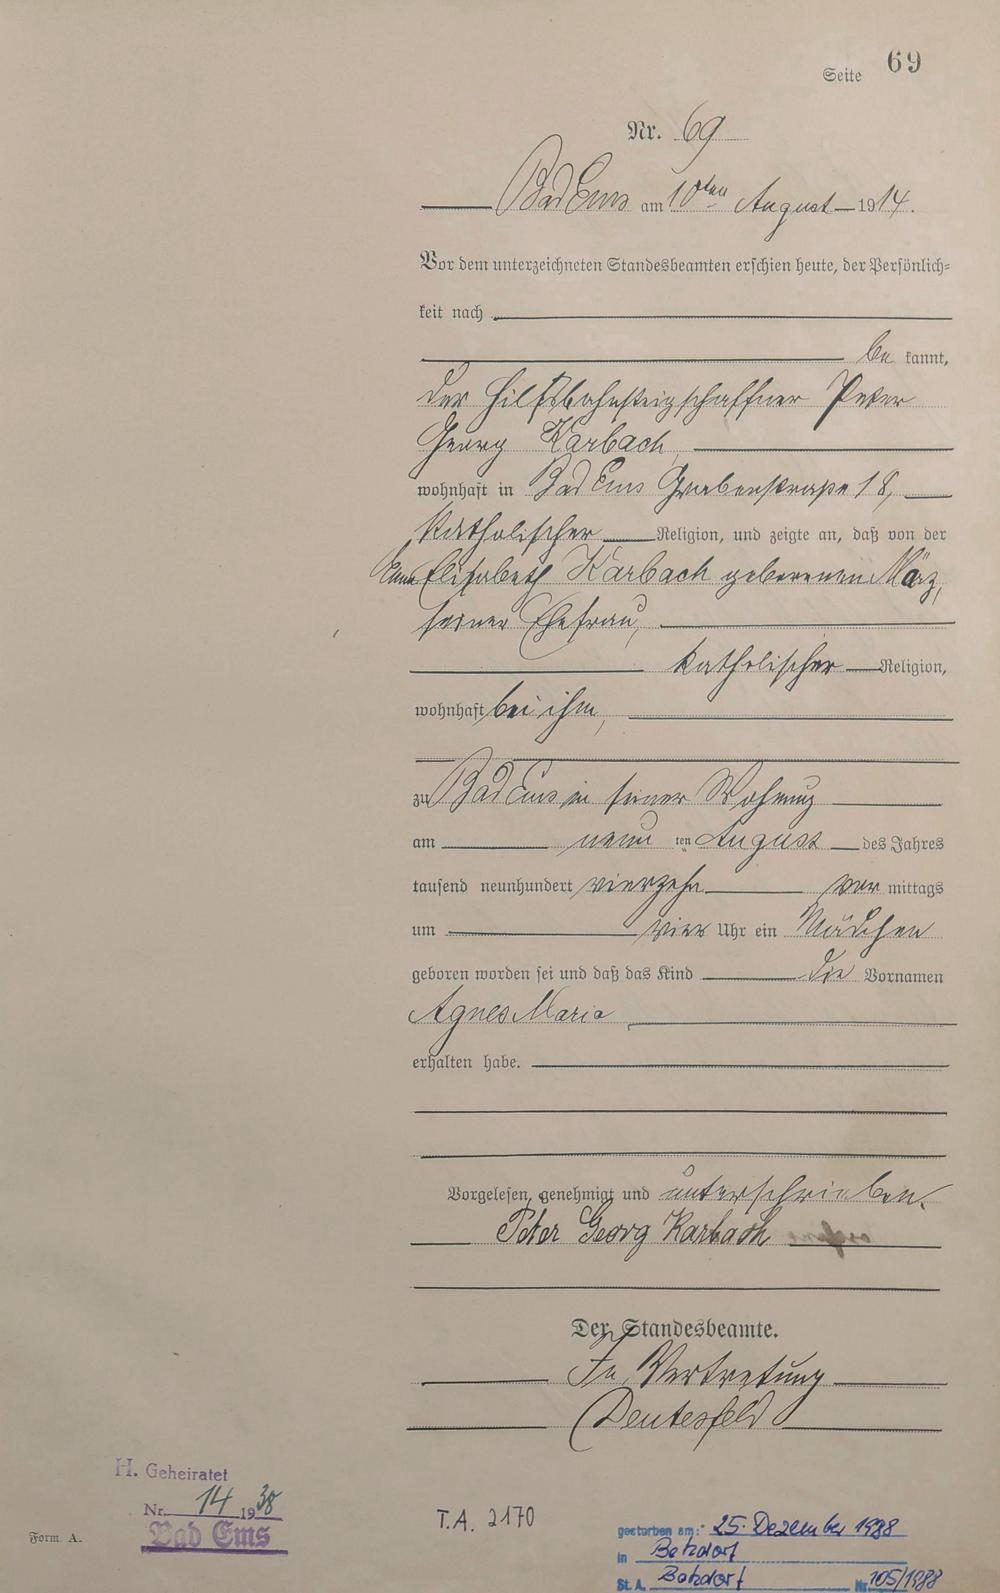 Seite 69
Nr. 69
Bad Ems am 10ten August 1914.
Vor dem unterzeichneten Standesbeamten erschien heute, der Persönlich-
keit nach
be kannt,
der Hilfsbahnsteigschaffner Peter
Georg Karbach,
wohnhaft in Bad Ems Grabenstraße 18,
katholischer Religion, und zeigte an, daß von der
Anna Elisabeth Karbach geborenen März,
seiner Ehefrau,
katholischer Religion,
wohnhaft bei ihm,
zu Bad Ems in seiner Wohnung
am neun ten August des Jahres
tausend neunhundert vierzehn vor mittags
um vier Uhr ein Mädchen
geboren worden sei und daß das Kind die Vornamen
Agnes Maria
erhalten habe.
Vorgelesen, genehmigt und unterschrieben.
Peter Georg Karbach
Der Standesbeamte.
In Vertretung
H. Geheiratet
Nr. 14 1938
Bad Ems
Form A.
T.A. 2170
gestorben am: 25. Dezember 1988
in Betzdorf
St. A. Betzdorf Nr. 105/1988